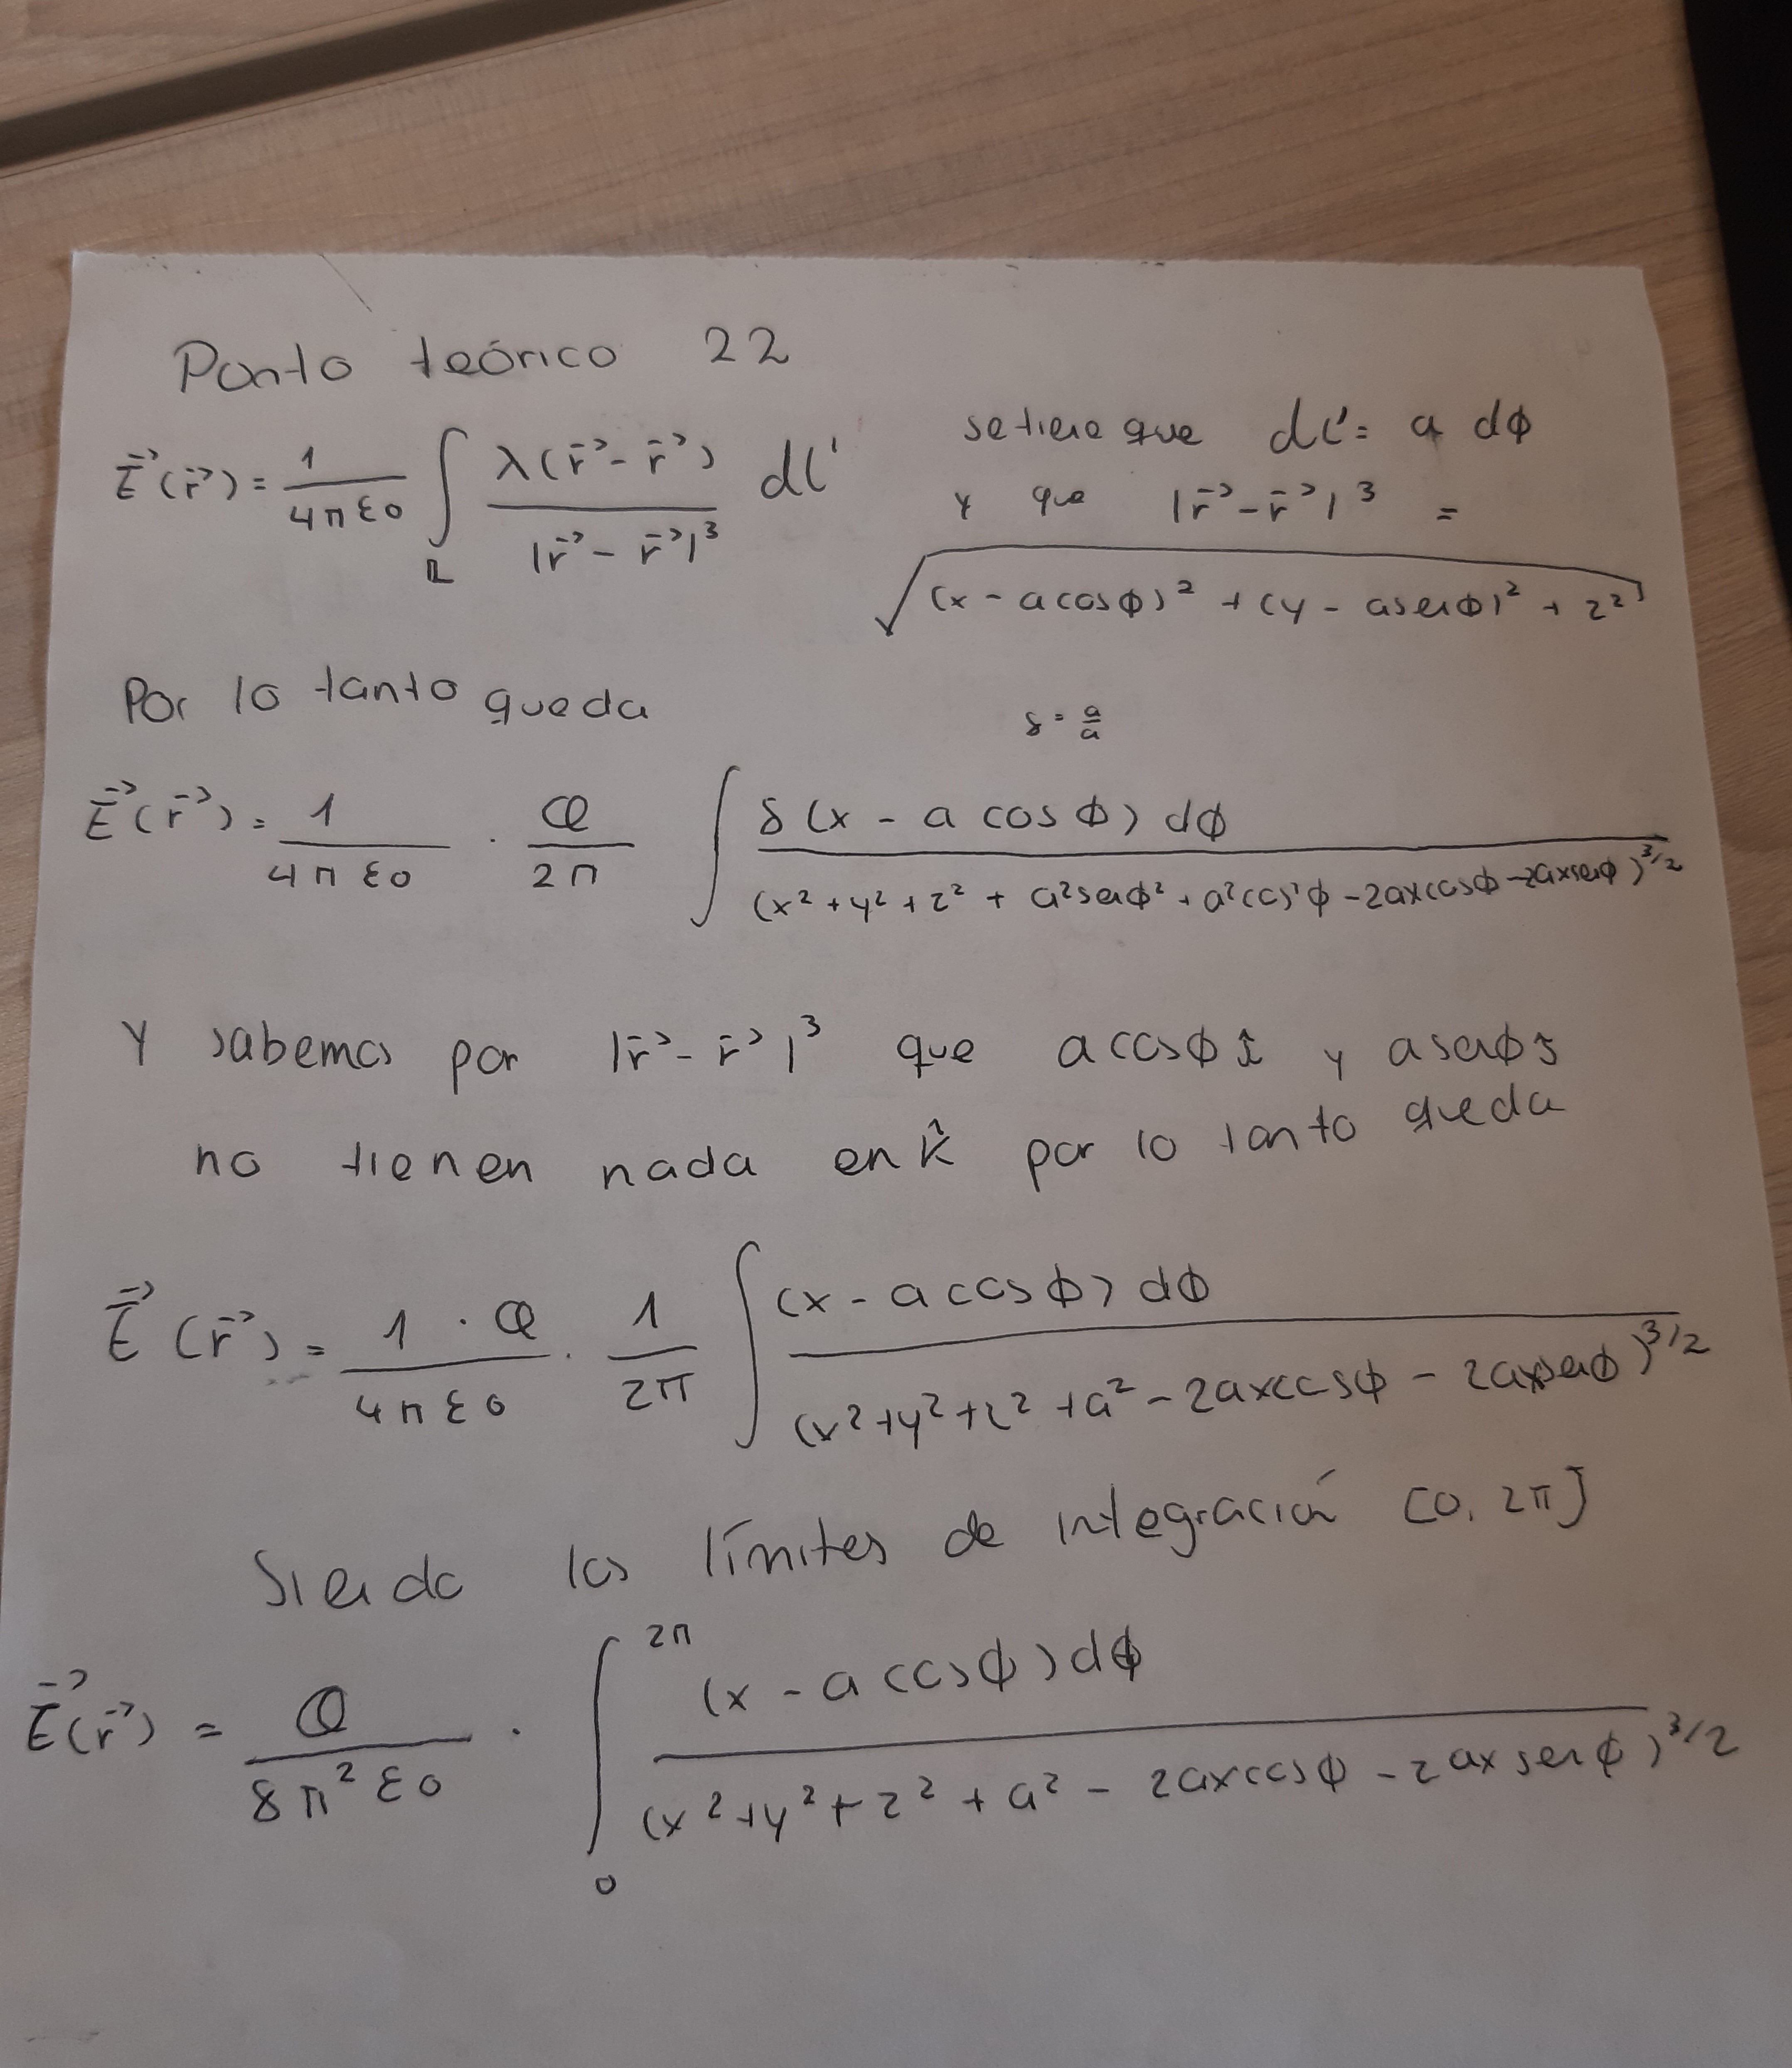 Punto teórico 22
E⃗(r⃗) = 1/(4πε0) ∫_L λ(r⃗ - r⃗')/|r⃗ - r⃗'|³ dl'
se tiene que dl' = a dϕ
y que |r⃗ - r⃗'|³ =
√((x - a cosϕ)² + (y - a senϕ)² + z²)
Por lo tanto queda
δ = a/a
E⃗(r⃗) = 1/(4πε0) · Q/(2π) ∫ δ(x - a cosϕ) dϕ/(x² + y² + z² + a²senϕ² + a²cos²ϕ - 2axcosϕ - 2axsenϕ)^3/2
Y sabemos por |r⃗ - r⃗'|³ que a cosϕ î y a senϕ ĵ
no tienen nada en k̂ por lo tanto queda
E⃗(r⃗) = 1 · Q/(4πε0) · 1/(2π) ∫ (x - a cosϕ) dϕ/(x² + y² + z² + a² - 2axcosϕ - 2axsenϕ)^3/2
Siendo los límites de integración [0, 2π]
E⃗(r⃗) = Q/(8π²ε0) · ∫_0^2π (x - a cosϕ) dϕ/(x² + y² + z² + a² - 2axcosϕ - 2ax senϕ)^3/2